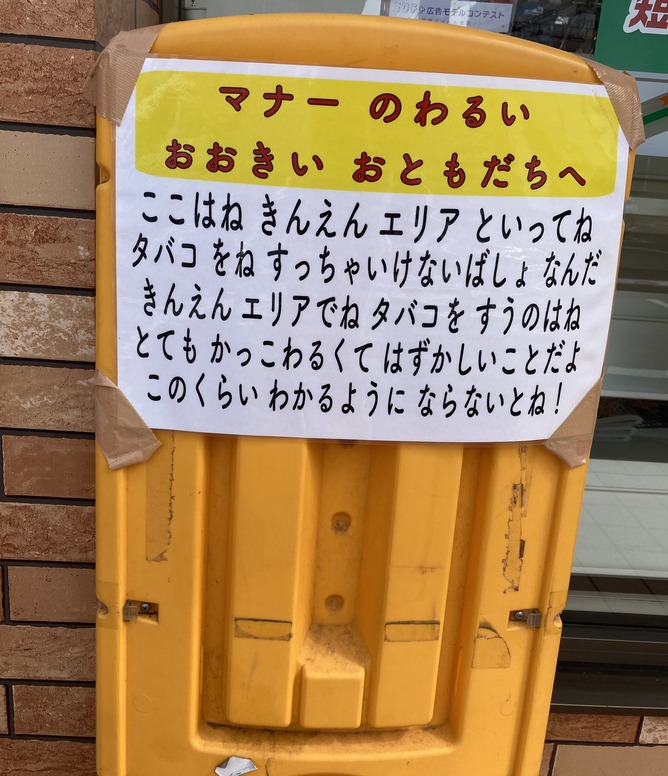 広告モデルコンテスト
短
マナー のわるい
おおきい おともだちへ
ここはね きんえん エリア といってね
タバコ をね すっちゃいけないばしょ なんだ
きんえん エリアでね タバコを すうのはね
とても かっこわるくて はずかしいことだよ
このくらい わかるように ならないとね!